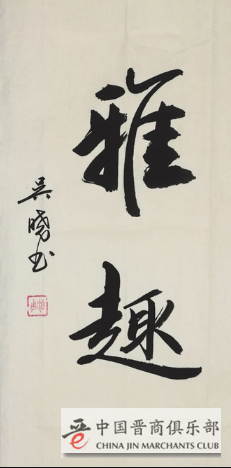 雅趣
吴晓书
中国晋商俱乐部
CHINA JIN MARCHANTS CLUB